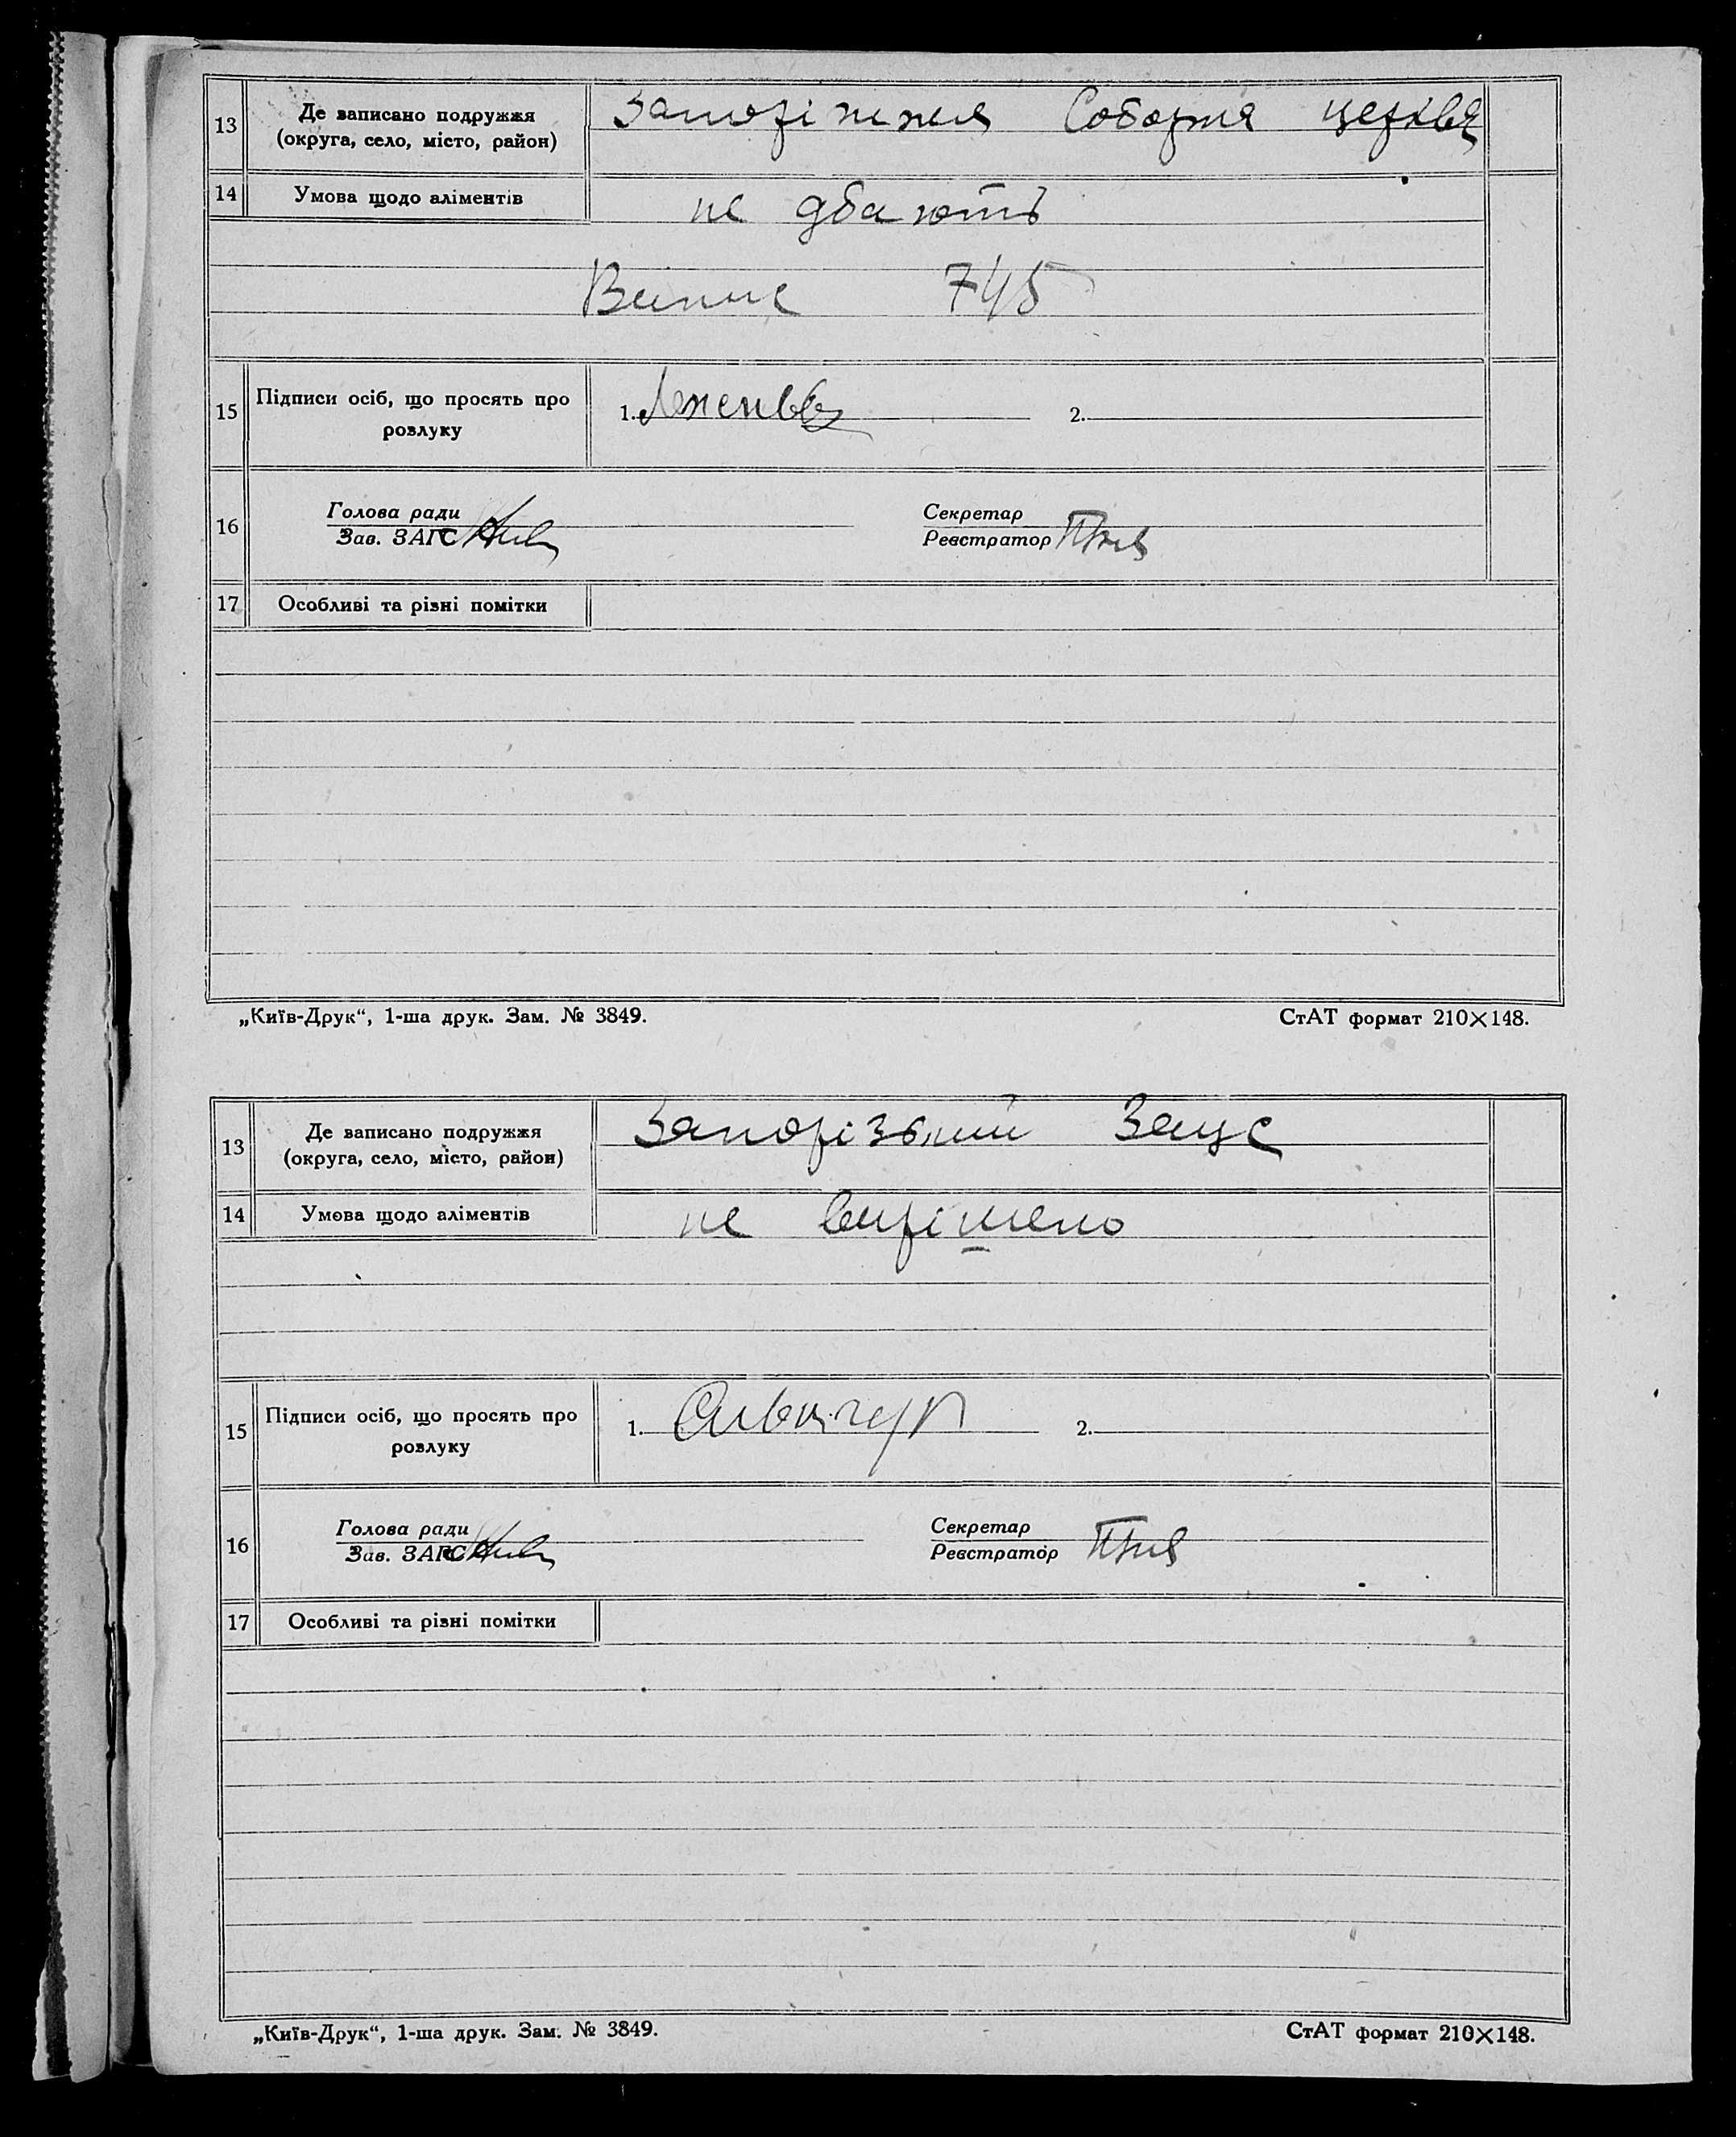 13 Де записано подружжя Запоріжжя Соборня церківя
(округа, село, місто, район)
14 Умова щодо аліментів не дбають
Випис 745
15 Підписи осіб, що просять про 1. 2.
розлуку
Голова ради Секретар
16
Зав. ЗАГС Реєстратор
17 Особливі та різні помітки
„Київ-Друк“, 1-ша друк. Зам. № 3849. СтАТ формат 210×148.
13 Де записано подружжя Запорізький Загс
(округа, село, місто, район)
14 Умова щодо аліментів не вирішено
15 Підписи осіб, що просять про 1. 2.
розлуку
Голова ради Секретар
16
Зав. ЗАГС Реєстратор
17 Особливі та різні помітки
„Київ-Друк“, 1-ша друк. Зам. № 3849. СтАТ формат 210×148.